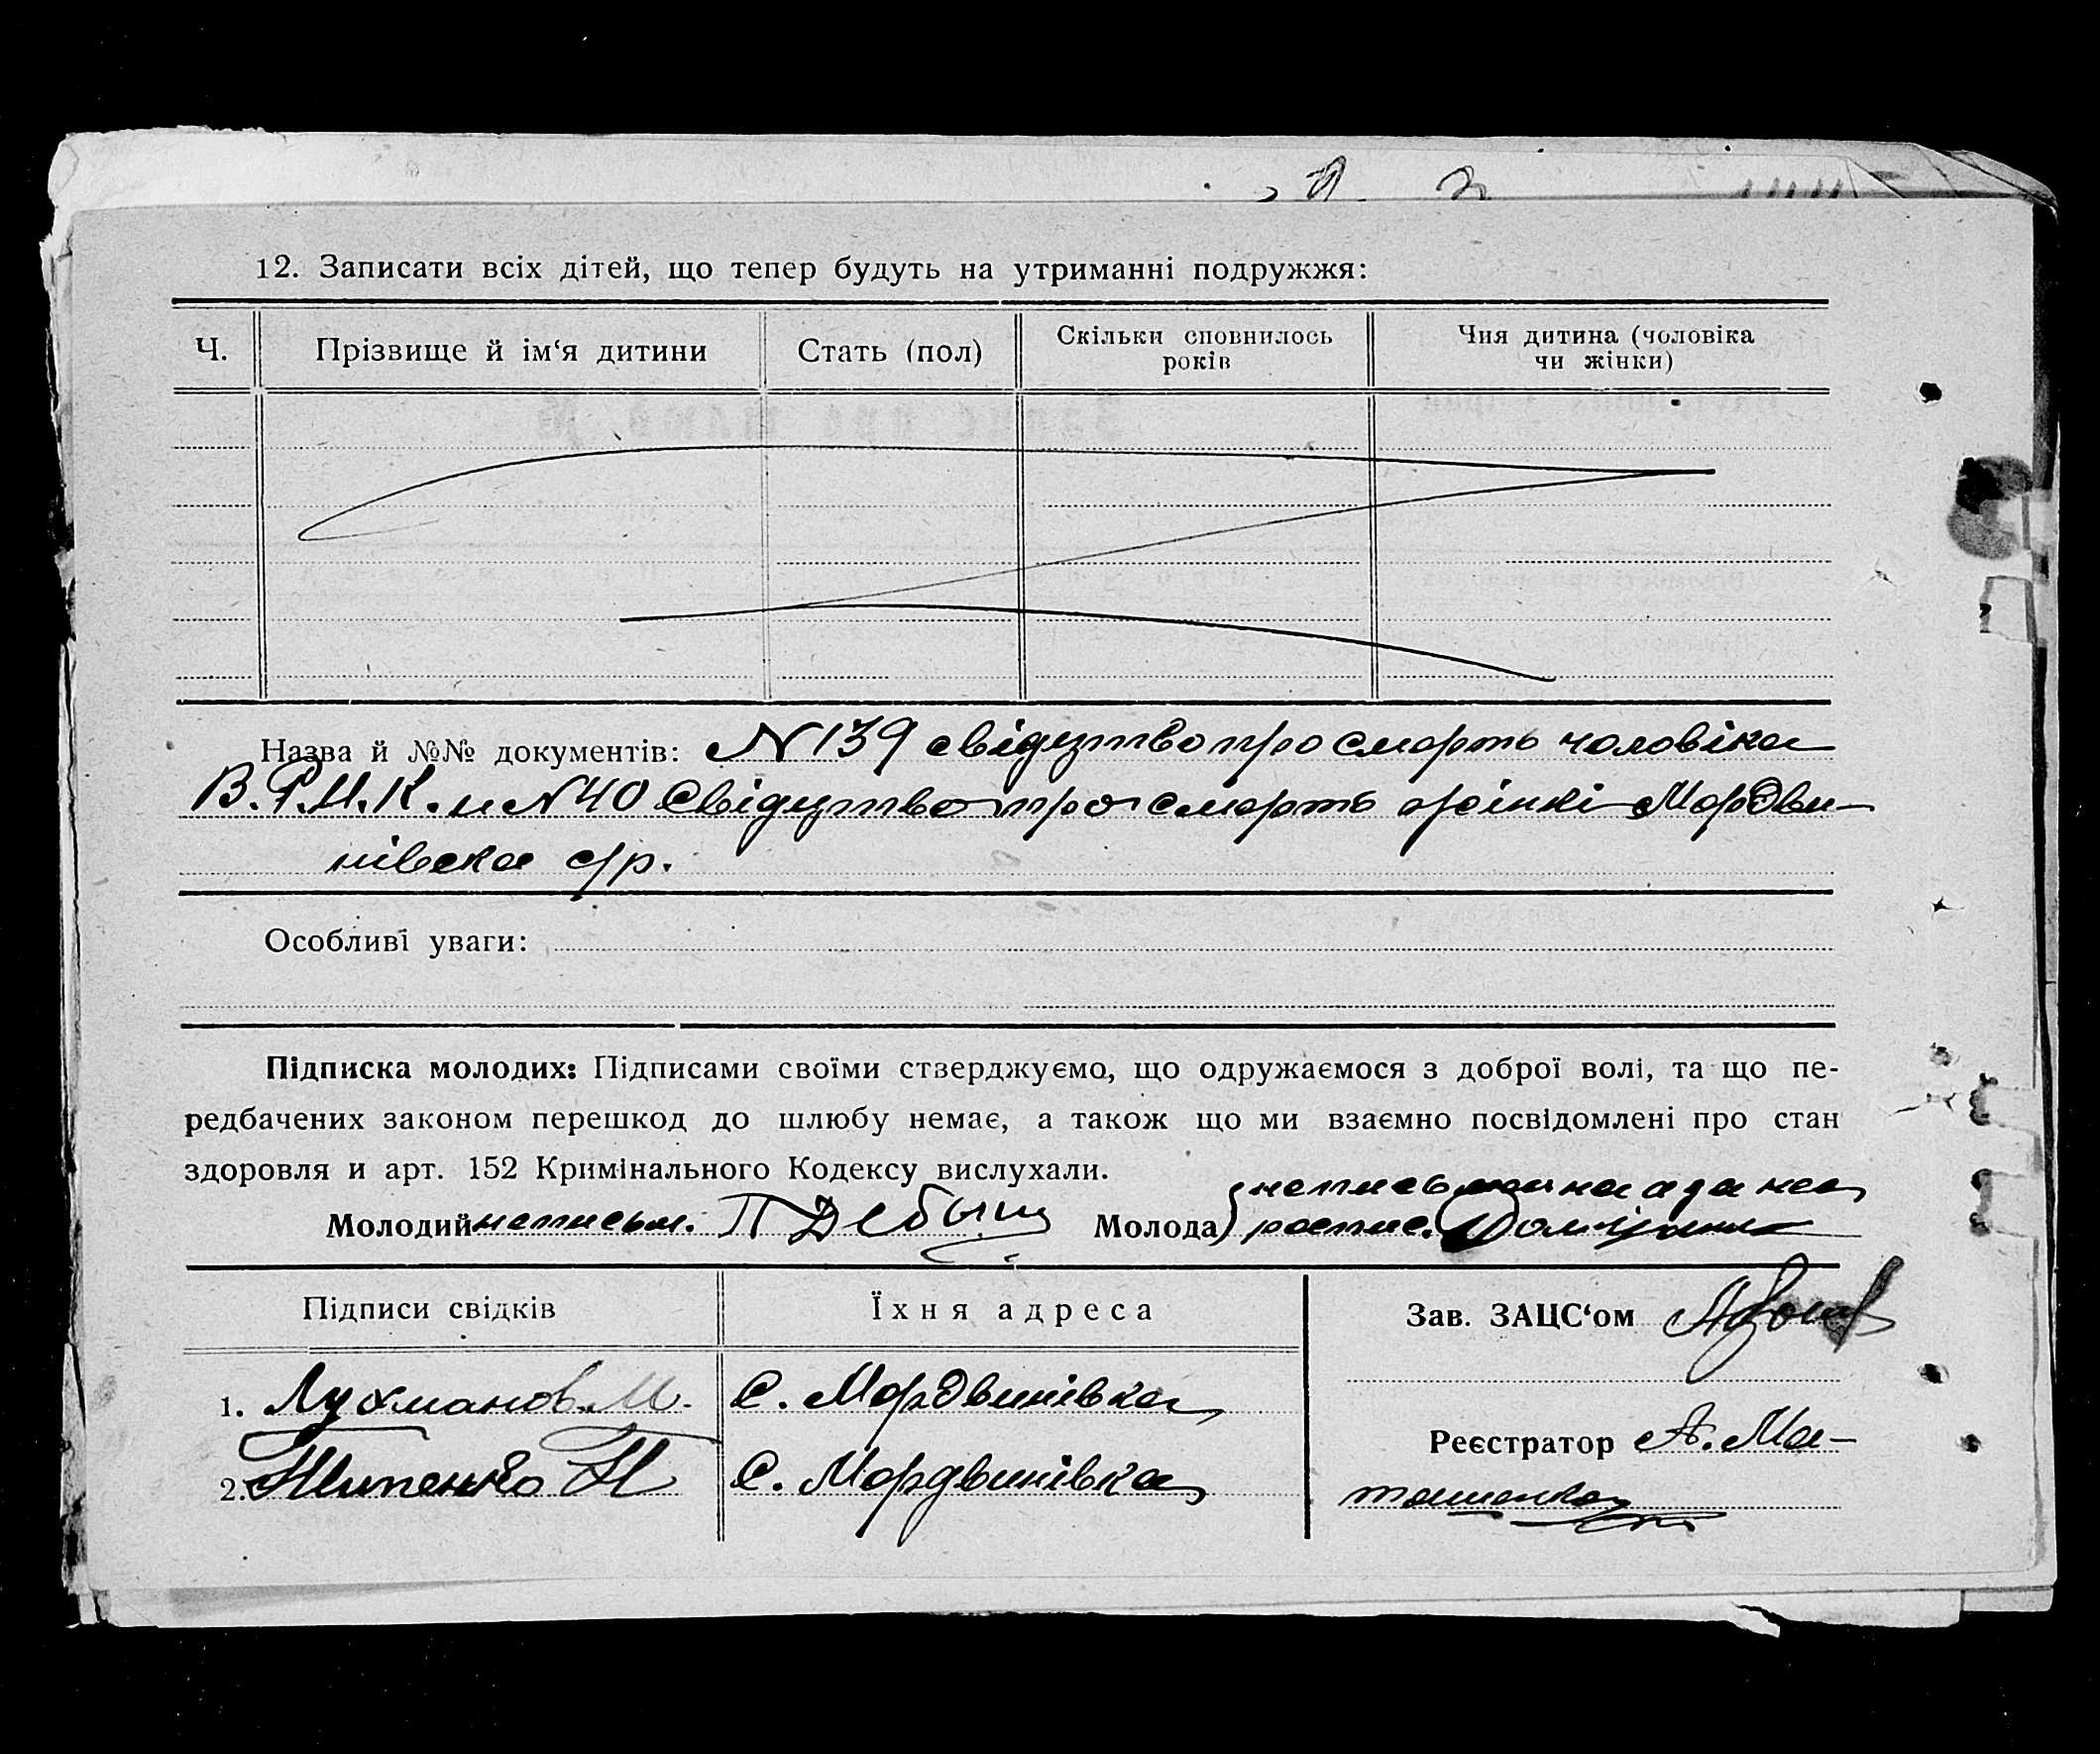 12. Записати всіх дітей, що тепер будуть на утриманні подружжя:
Ч.
Прізвище й ім‘я дитини
Стать (пол)
Скільки сповнилось
років
Чия дитина (чоловіка
чи жінки)
Назва й №№ документів: N 139 свідуцтво про смерть чоловіка
В.Р.И.К. и N 40 Свідуцтво про смерть жінкі Мордви-
нівска с/р.
Особливі уваги:
Підписка молодих: Підписами своїми стверджуємо, що одружаємося з доброї волі, та що пе-
редбачених законом перешкод до шлюбу немає, а також що ми взаємно посвідомлені про стан
здоровля и арт. 152 Кримінального Кодексу вислухали.
Молодий неписьм. П
Молода
роспис.
Підписи свідків
Їхня адреса
Зав. ЗАЦС‘ом
1. Лухманов М.
С. Мордвинівка
Реєстратор А. Ма-
2. С. Мордвинівка